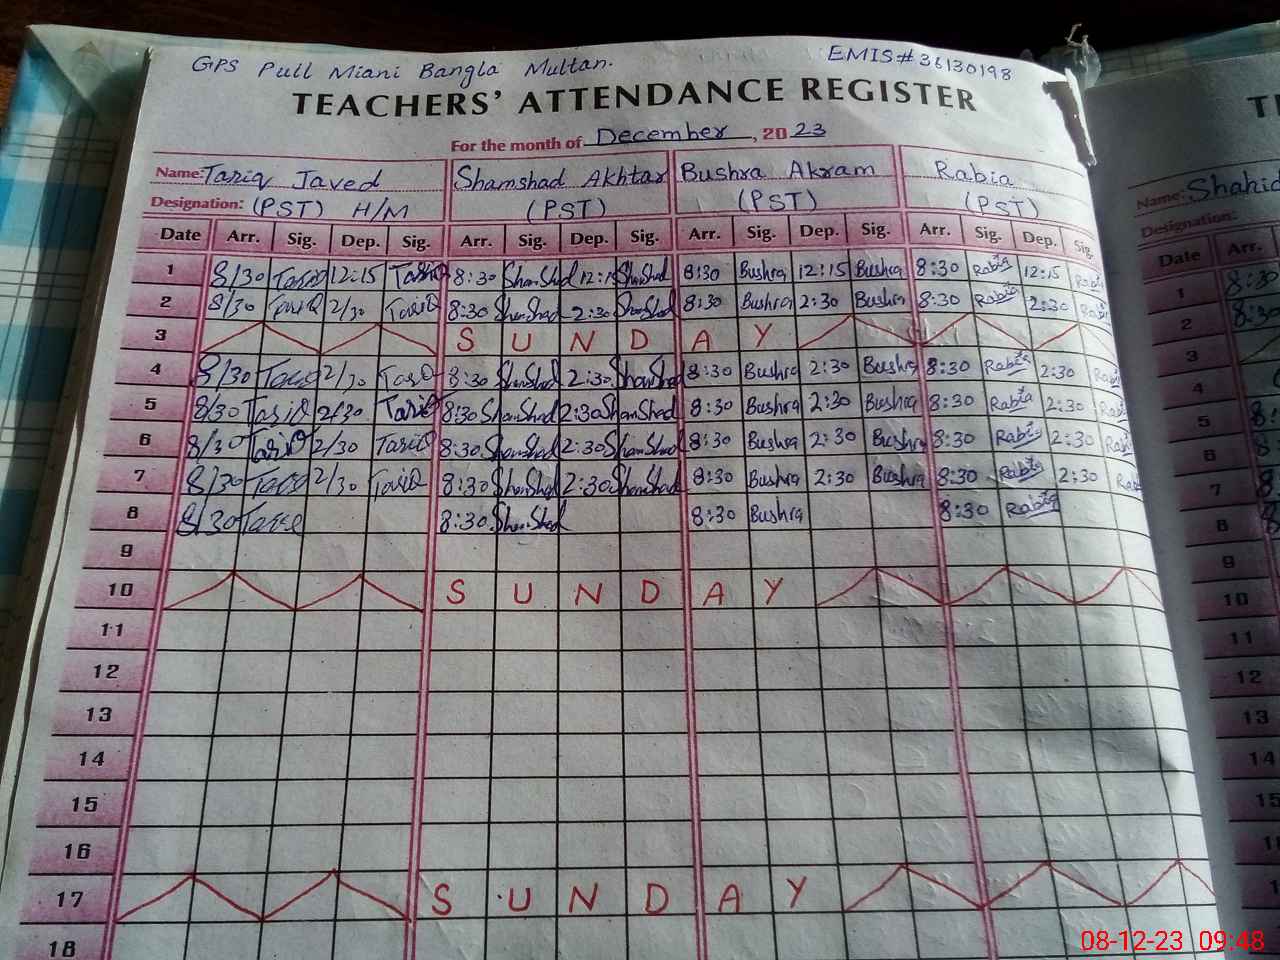 GPS Pull Miani Bangla Multan. EMIS# 36130198
TEACHERS' ATTENDANCE REGISTER
For the month of December, 20 23
Name: Tariq Javed Shamshad Akhtar Bushra Akram Rabia
Designation: (PST) H/M (PST) (PST) (PST)
Date Arr. Sig. Dep. Sig. Arr. Sig. Dep. Sig. Arr. Sig. Dep. Sig. Arr. Sig. Dep. Sig.
1 8/30 Tariq 12:15 Tariq 8:30 ShamShad 12:15 ShamShad 8:30 Bushra 12:15 Bushra 8:30 Rabia 12:15 Rabia
2 8/30 TariQ 2/30 TariQ 8:30 ShamShad 2:30 ShamShad 8:30 Bushra 2:30 Bushra 8:30 Rabia 2:30 Rabia
3 S U N D A Y
4 8/30 Tariq 2/30 TariQ 8:30 ShamShad 2:30 ShamShad 8:30 Bushra 2:30 Bushra 8:30 Rabia 2:30 Rabia
5 8/30 TariQ 2/30 TariQ 8:30 ShamShad 2:30 ShamShad 8:30 Bushra 2:30 Bushra 8:30 Rabia 2:30 Rabia
6 8/30 TariQ 2/30 TariQ 8:30 ShamShad 2:30 ShamShad 8:30 Bushra 2:30 Bushra 8:30 Rabia 2:30 Rabia
7 8/30 Tariq 2/30 TariQ 8:30 ShamShad 2:30 ShamShad 8:30 Bushra 2:30 Bushra 8:30 Rabia 2:30 Rab
8 8/30 Tariq 8:30 ShamShad 8:30 Bushra 8:30 Rabia
9
10 S U N D A Y
11
12
13
14
15
16
17 S U N D A Y
18
Name: Shahid
Designation:
Date Arr.
1 8:30
2 8:30
3
4
5 8:
6
7
8
9
10
11
12
13
14
15
08-12-23 09:48